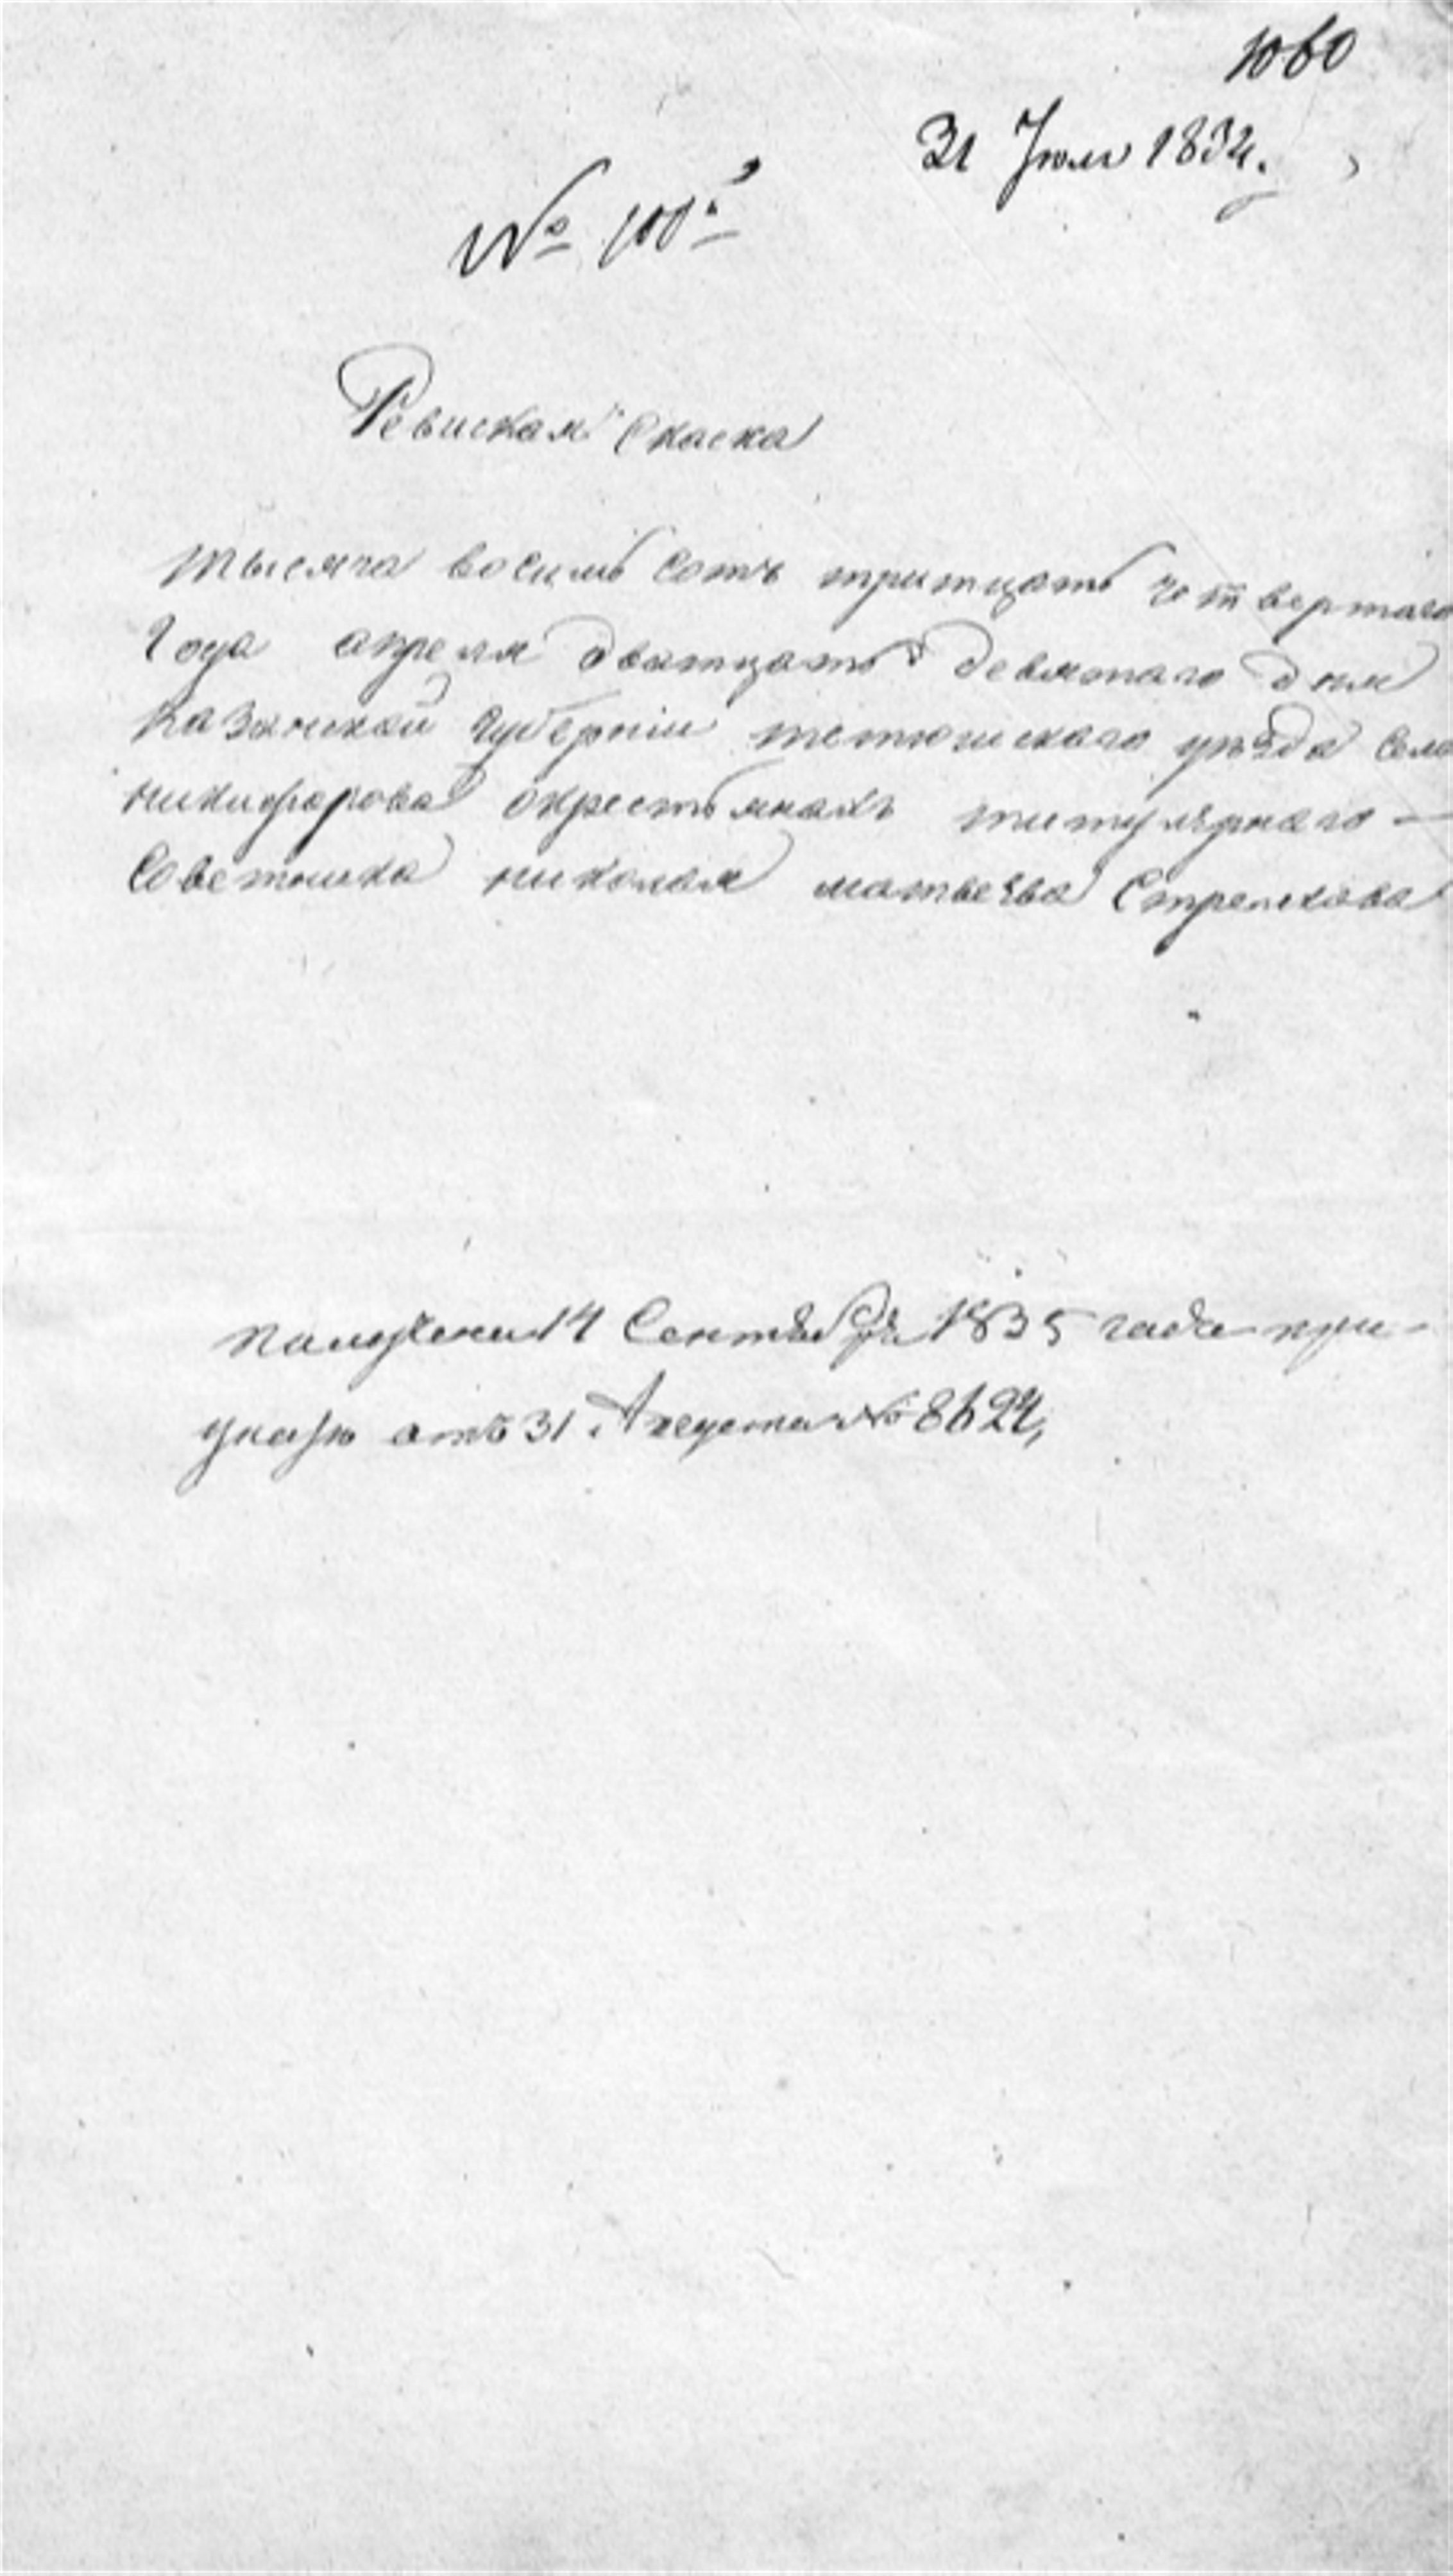 1060
31 Июля 1834.
№ 100й
Ревиская Скаска
тысяча восимь сотъ тритцать четвертаго
Года апреля дватцать девятаго дня
казанской губерніи тетюшскаго уѣзда села
никифорова окрестьянахъ титулярнаго —
Советника николая матвеева Стрелкова
получена 14 Сентября 1835 года при
указе отъ 31 Августа № 8624,